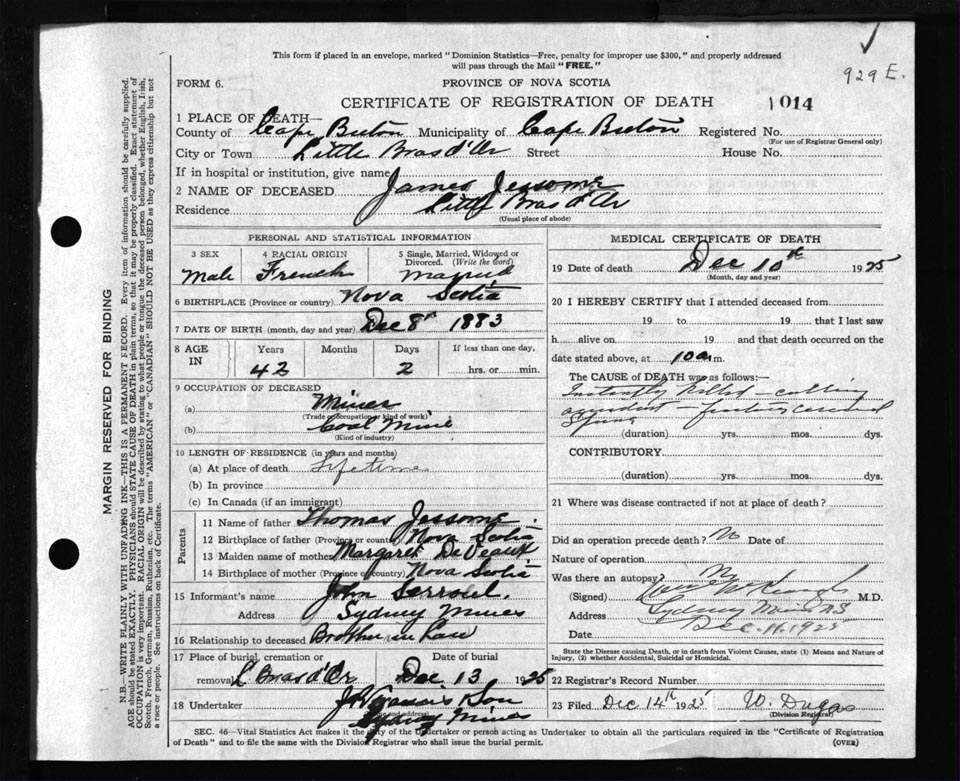 This form if placed in an envelope, marked "Dominion Statistics—Free, penalty for improper use $300," and properly addressed
will pass through the Mail "FREE."
929 E.
FORM 6.
PROVINCE OF NOVA SCOTIA
CERTIFICATE OF REGISTRATION OF DEATH
1014
1 PLACE OF DEATH—
County of Cape Breton Municipality of Cape Breton Registered No.
(For use of Registrar General only)
City or Town Little Bras d'Or Street House No.
If in hospital or institution, give name
2 NAME OF DECEASED James Jessome
Residence Little Bras d'Or
(Usual place of abode)
PERSONAL AND STATISTICAL INFORMATION
3 SEX
Male
4 RACIAL ORIGIN
French
5 Single, Married, Widowed or
Divorced. (Write the word)
Married
6 BIRTHPLACE (Province or country) Nova Scotia
7 DATE OF BIRTH (month, day and year) Dec 8th 1883
8 AGE IN
Years Months Days If less than one day,
42 2 hrs. or min.
9 OCCUPATION OF DECEASED
(a) Miner
(Trade occupation or kind of work)
(b) Coal Mine
(Kind of industry)
10 LENGTH OF RESIDENCE (in years and months)
(a) At place of death Lifetime
(b) In province
(c) In Canada (if an immigrant)
Parents
11 Name of father Thomas Jessome.
12 Birthplace of father (Province or country) Nova Scotia
13 Maiden name of mother Margaret DeVeaux
14 Birthplace of mother (Province or country) Nova Scotia
15 Informant's name John
Address Sydney Mines
16 Relationship to deceased Brother in Law
17 Place of burial, cremation or
removal L Bras d'Or
Date of burial
Dec 13 1925
18 Undertaker & Son
Sydney Mines
MEDICAL CERTIFICATE OF DEATH
19 Date of death Dec 10th 1925
(Month, day and year)
20 I HEREBY CERTIFY that I attended deceased from
19 to 19 that I last saw
h alive on 19 and that death occurred on the
date stated above, at 10 a m.
The CAUSE of DEATH was as follows:—
Instantly killed —
accident — fracture cervical
Spine
(duration) yrs. mos. dys.
CONTRIBUTORY
(duration) yrs. mos. dys.
21 Where was disease contracted if not at place of death?
Did an operation precede death? No Date of
Nature of operation
Was there an autopsy? No
(Signed) M.D.
Address Sydney Mines N.S
Date Dec. 11. 1925
State the Disease causing Death, or in death from Violent Causes, state (1) Means and Nature of
Injury, (2) whether Accidental, Suicidal or Homicidal.
22 Registrar's Record Number
23 Filed Dec 14th 1925 W. Dugas
(Division Registrar)
SEC. 46—Vital Statistics Act makes it the duty of the Undertaker or person acting as Undertaker to obtain all the particulars required in the "Certificate of Registration
of Death" and to file the same with the Division Registrar who shall issue the burial permit.
(OVER)
MARGIN RESERVED FOR BINDING
N.B.—WRITE PLAINLY WITH UNFADING INK—THIS IS A PERMANENT RECORD. Every item of information should be carefully supplied.
AGE should be stated EXACTLY. PHYSICIANS should STATE CAUSE OF DEATH in plain terms, so that it may be properly classified. Exact statement of
OCCUPATION is very important. RACIAL ORIGIN will be described by stating to what people or tongue the deceased person belonged, whether English, Irish,
Scotch, French, German, Russian, Ruthenian, etc. The terms "AMERICAN" or "CANADIAN" SHOULD NOT BE USED as they express citizenship but not
a race or people. See instructions on back of Certificate.